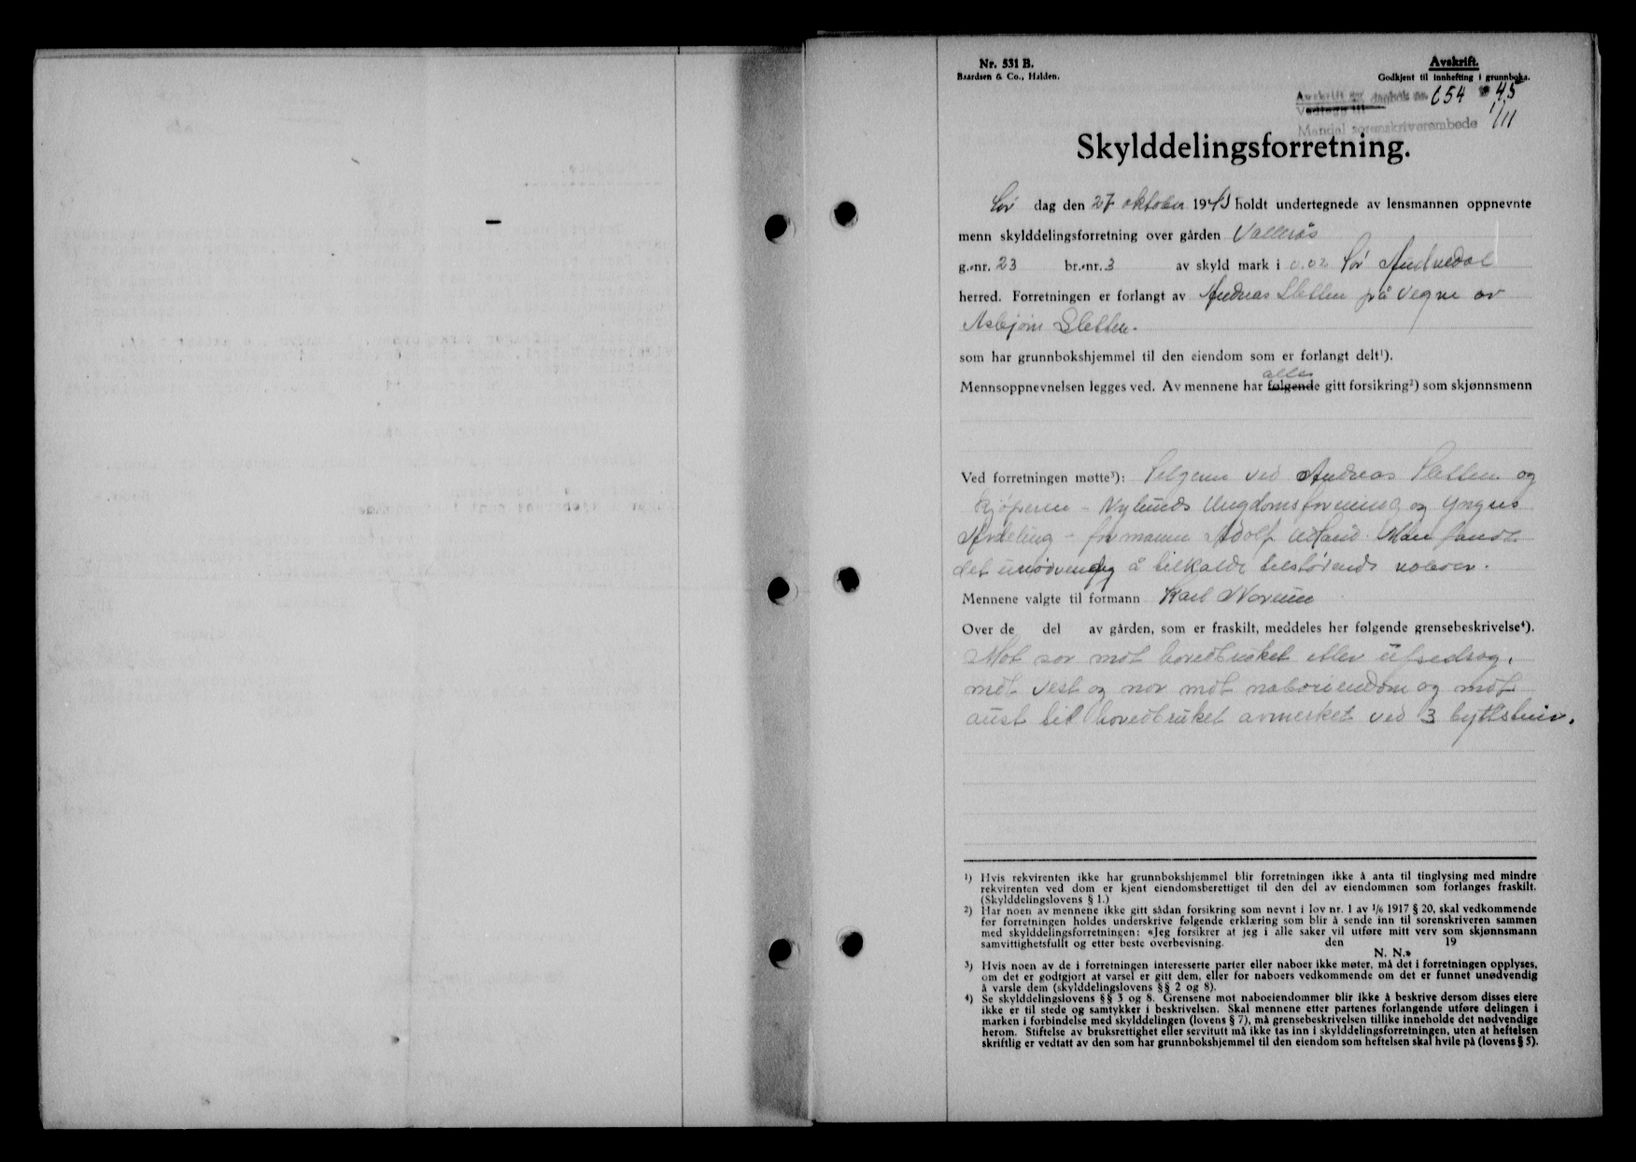 Nr. 531 B.
Baardsen & Co., Halden.
Avskrift.
Godkjent til innhefting i grunnboka.
Avskrift av dagbok nr. 654 45
Vedlegg til 1/11
Mandal sorenskriverembede
Skylddelingsforretning.
Lør dag den 27 oktober 1945 holdt undertegnede av lensmannen oppnevnte
menn skylddelingsforretning over gården Vallerås
g.-nr. 23 br.-nr. 3 av skyld mark i 0.02 Sør Audnedal
herred. Forretningen er forlangt av Andreas Sletten på vegne av
Asbjørn Sletten.
som har grunnbokshjemmel til den eiendom som er forlangt delt¹).
alle
Mennsoppnevnelsen legges ved. Av mennene har følgende gitt forsikring²) som skjønnsmenn
Ved forretningen møtte³): Selgeren ved Andreas Sletten og
kjøperen - Nylunds Ungdomsforening og Yngres
Avdeling - formann Adolf Man fandt
det unødvendig å tilkalde tilstøtende naboer.
Mennene valgte til formann Karl
Over de del av gården, som er fraskilt, meddeles her følgende grensebeskrivelse⁴).
Mot sør mot hovedbruket etter
mot vest og nor mot naboeiendom og mot
aust til hovedbruket avmerket ved 3 byttestein.
¹) Hvis rekvirenten ikke har grunnbokshjemmel blir forretningen ikke å anta til tinglysing med mindre
rekvirenten ved dom er kjent eiendomsberettiget til den del av eiendommen som forlanges fraskilt.
(Skylddelingslovens § 1.)
²) Har noen av mennene ikke gitt sådan forsikring som nevnt i lov nr. 1 av ¹/₆ 1917 § 20, skal vedkommende
før forretningen holdes underskrive følgende erklæring som blir å sende inn til sorenskriveren sammen
med skylddelingsforretningen: «Jeg forsikrer at jeg i alle saker vil utføre mitt verv som skjønnsmann
samvittighetsfullt og etter beste overbevisning. den 19
N. N.»
³) Hvis noen av de i forretningen interesserte parter eller naboer ikke møter, må det i forretningen opplyses,
om det er godtgjort at varsel er gitt dem, eller for naboers vedkommende om det er funnet unødvendig
å varsle dem (skylddelingslovens §§ 2 og 8).
⁴) Se skylddelingslovens §§ 3 og 8. Grensene mot naboeiendommer blir ikke å beskrive dersom disses eiere
ikke er til stede og samtykker i beskrivelsen. Skal mennene etter partenes forlangende utføre delingen i
marken i forbindelse med skylddelingen (lovens § 7), må grensebeskrivelsen tillike inneholde det nødvendige
herom. Stiftelse av bruksrettighet eller servitutt må ikke tas inn i skylddelingsforretningen, uten at heftelsen
skriftlig er vedtatt av den som har grunnbokshjemmel til den eiendom som heftelsen skal hvile på (lovens § 5).